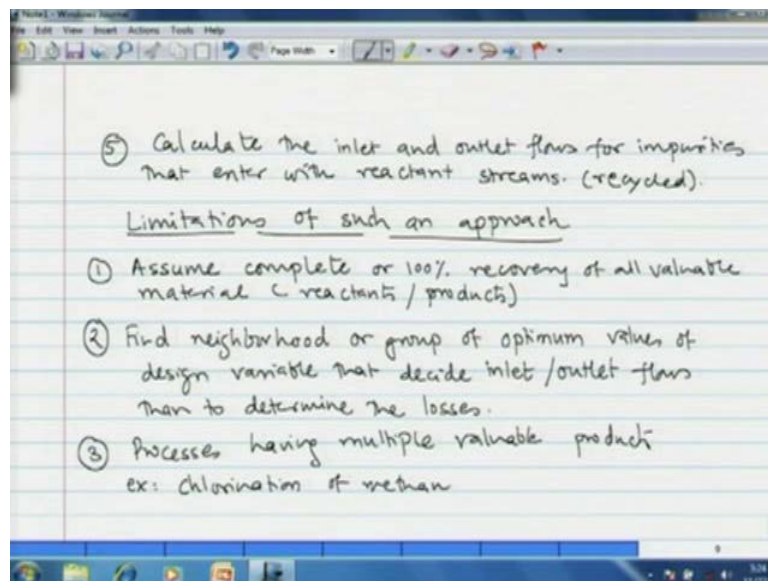 Note1 - Windows Journal
File Edit View Insert Actions Tools Help
Page Width
5 Calculate the inlet and outlet flows for impurities
that enter with reactant streams. (recycled).
Limitations of such an approach
1 Assume complete or 100% recovery of all valuable
material (reactants / products)
2 Find neighborhood or group of optimum values of
design variable that decide inlet / outlet flows
than to determine the losses.
3 Processes having multiple valuable product
ex: chlorination of methan
9